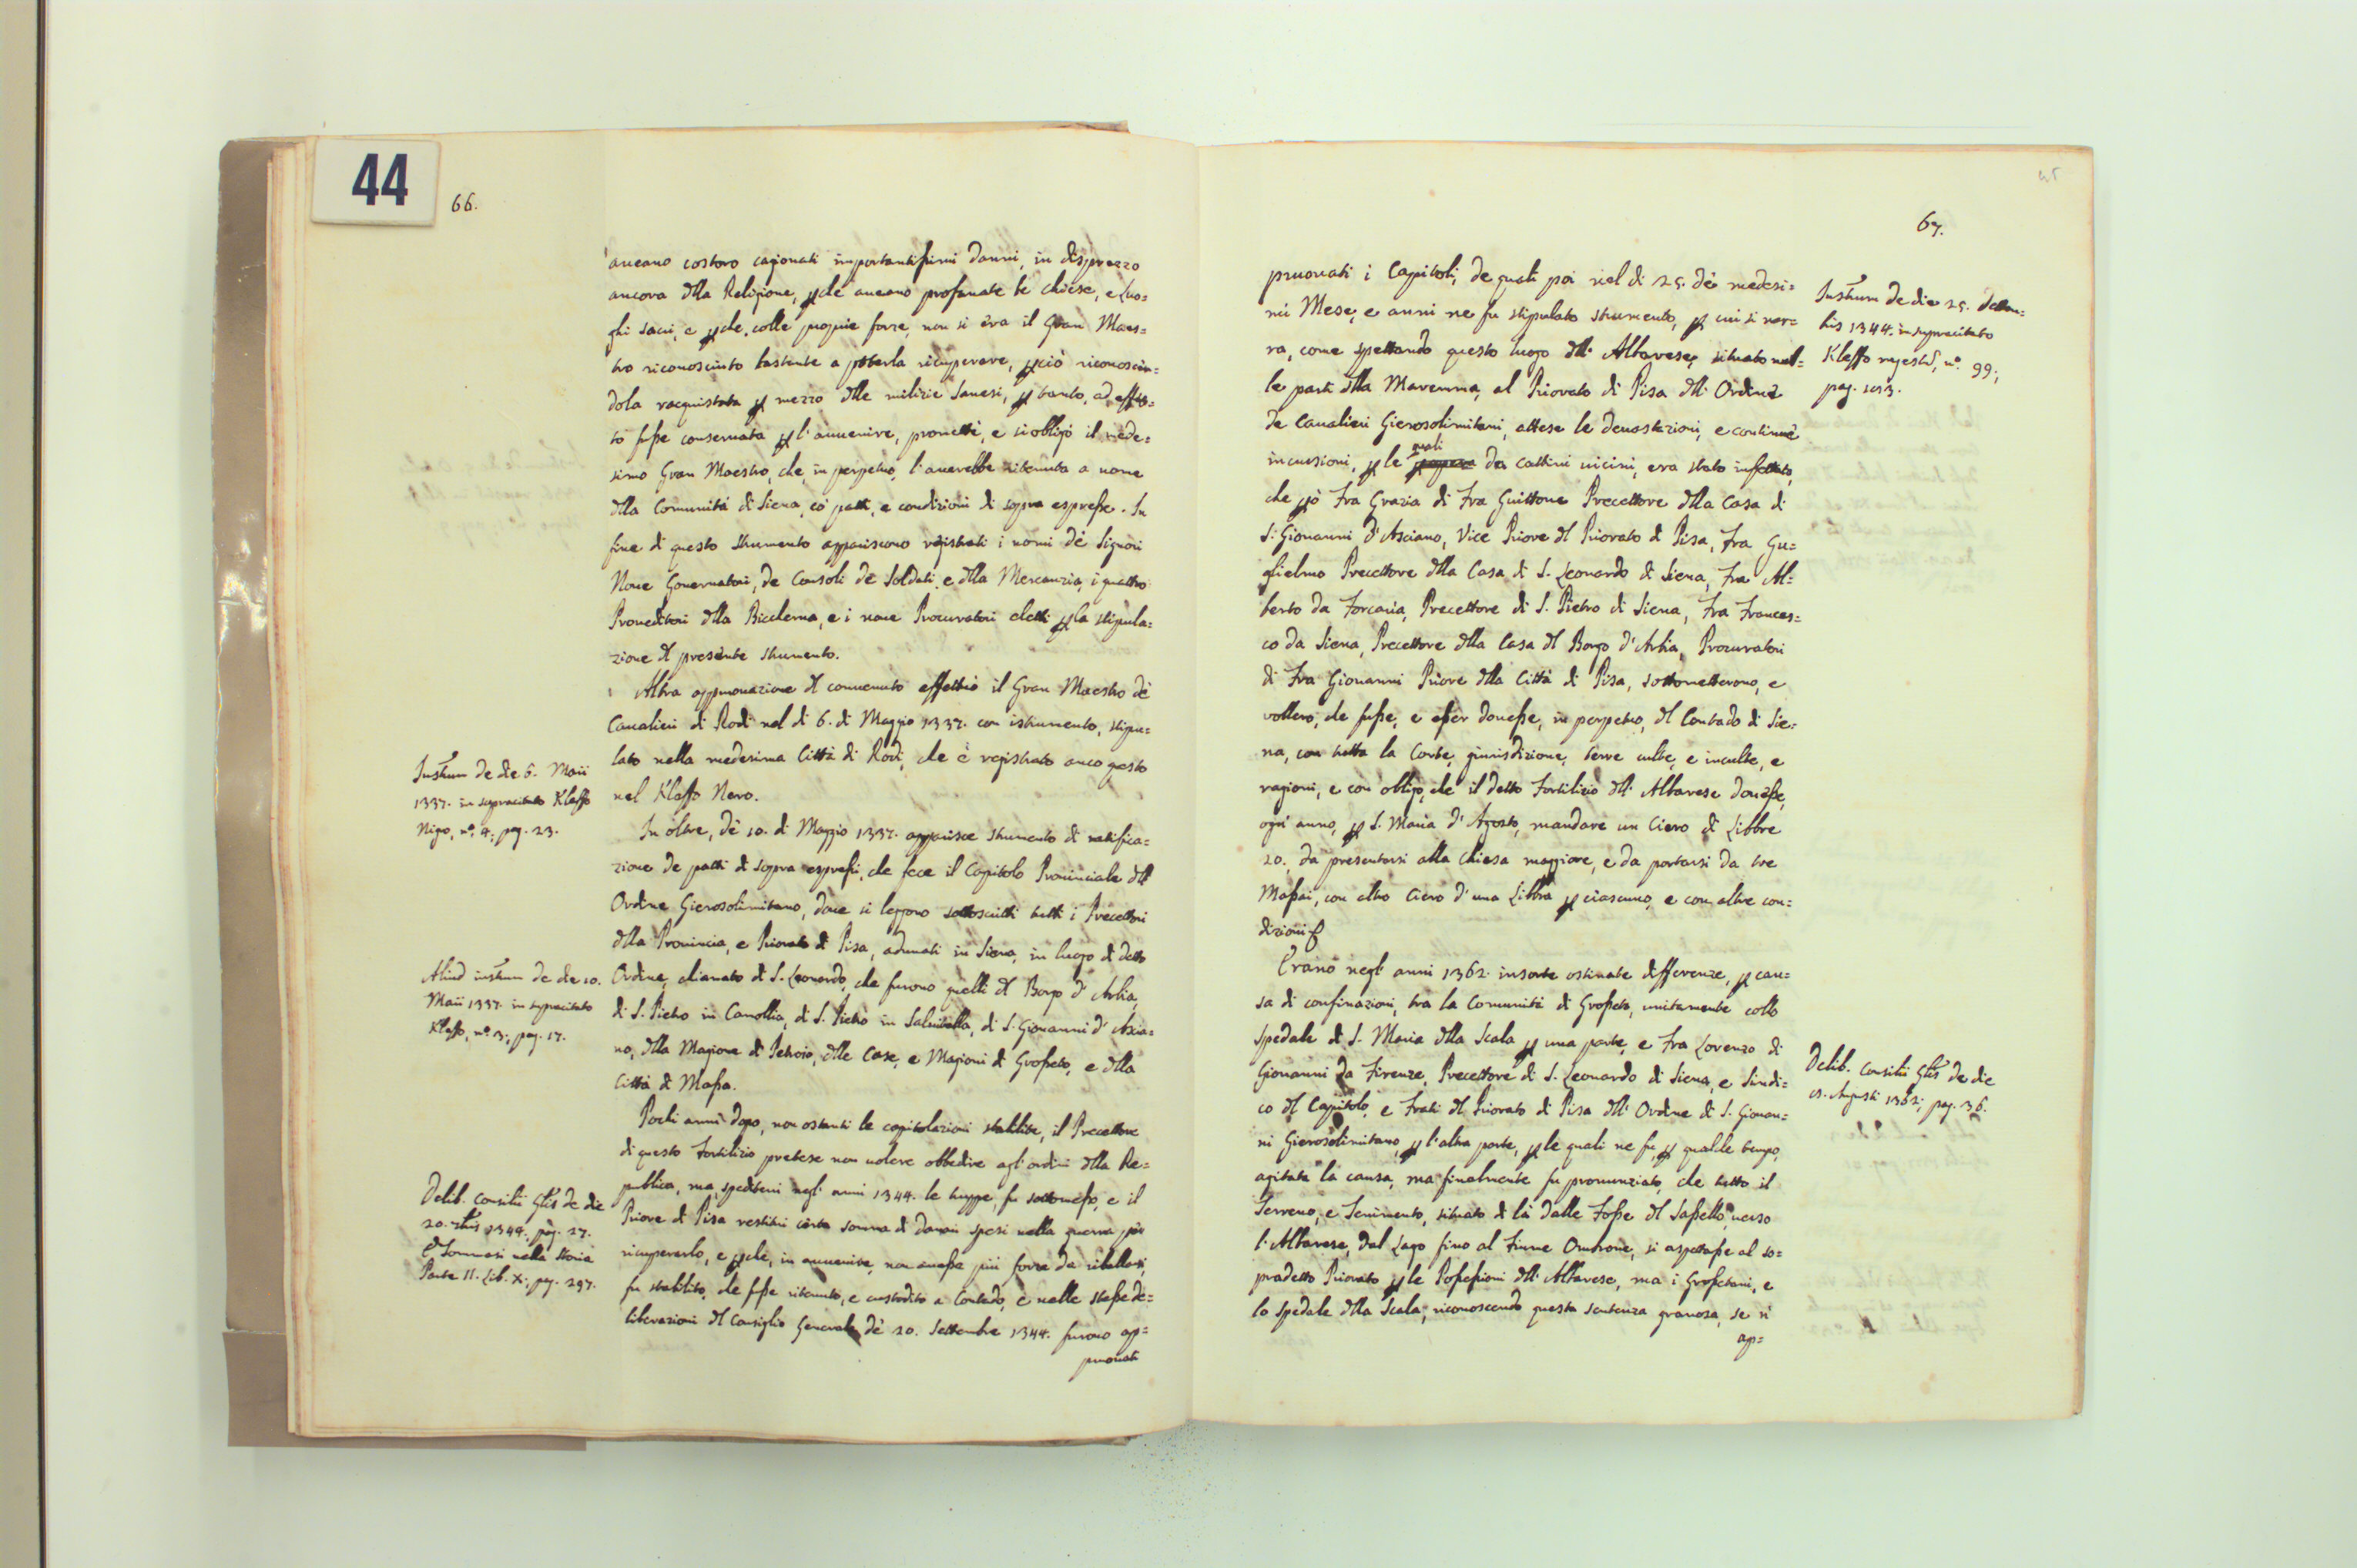 44
66.
aueano costoro cagionati importantissimi danni, in disprezzo
ancora dlla Religione, pche aueano profanate le chiese, e Luo=
ghi sacri, e pche, colle proprie forze, non si era il Gran Maes=
tro riconosciuto bastante a poterla ricuperare, pciò riconoscen=
dola racquistata p mezzo dlle milizie Sanesi, p tanto, ad effet=
to fusse conseruata p l'auuenire, promette, e si obligò il mede=
simo Gran Maestro, che, in perpetuo, l'auerebbe ritenuta a nome
dlla Comunità di Siena, co' patti, e condizioni di sopra espresse. In
fine di questo strumento appariscono registrati i nomi de' Signori
Noue Gouernatori, de Consoli de' Soldati, e dlla Mercanzia, i quattro
Proueditori dlla Biccherna, e i noue Procuratori eletti p la stipula=
zione dl presente strumento.
Altra approuazione dl conuenuto effettuò il Gran Maestro de'
Caualieri di Rodi nel dì 6. di Maggio 1337. con istrumento, stipu=
lato nella medesima Città di Rodi, che è registrato anco questo
nel Kleffo Nero.
Instrum de die 6. Maii
1337. in supracitato Kleffo
Nigro, nº. 4; pag. 23.
In oltre, de' 10. di Maggio 1337. apparisce strumento di ratifica=
zione de patti di sopra espressi, che fece il Capitolo Prouinciale dll'
Ordine Gierosolimitano, doue si leggono sottoscritti tutti i Precettori
dlla Prouincia, e Priorato di Pisa, adunati in Siena, in luogo di detto
Ordine, chiamato di S. Leonardo, che furono quelli dl Borgo d'Arbia,
di S. Pietro in Camollia, di S. Pietro in Saluitella, di S. Giouanni d'Ascia=
no, dlla Magione di Petroio, dlle Case, e Magioni di Grosseto, e dlla
Città di Massa.
Aliud instrum de die 10.
Maii 1337. in supracitato
Kleffo, nº. 3; pag. 17.
Pochi anni dopo, non ostanti le capitolazioni stabilite, il Precettore
di questo Fortilizio pretese non uolere obbedire agl'ordini dlla Re=
publica, ma, speditevi negl'anni 1344. le truppe, fu sottomesso, e il
Priore di Pisa restituì certa somma di danari spesi nella guerra per
ricuperarlo, e pche, in auuenire, non auesse più forza da ribellarsi,
fu stabilito, che fusse ritenuto, e custodito a Contado, e nelle stesse de=
liberazioni dl Consiglio Generale de' 20. Settembre 1344. furono ap=
prouati
Delib. Consilii Glis de die
20. 7bris 1344; pag. 27.
& Tommasi nella Storia
Parte II. Lib. X; pag. 297.
67.
prouati i Capitoli, de quali poi nel dì 25. de' medesi=
mi Mese, e anni ne fu stipulato strumento, p cui si nar=
ra, come spettando questo luogo dll' Alberese, situato nel=
le parti dlla Maremma, al Priorato di Pisa dll' Ordine
de Caualieri Gierosolimitani, attese le deuastazioni, e continue
incursioni, p le quali da cattiui uicini, era stato infestato,
che pciò Fra Grazia di Fra Guittone Precettore dlla Casa di
S. Giouanni d'Asciano, Vice Priore dl Priorato di Pisa, Fra Gu=
glielmo Precettore dlla Casa di S. Leonardo di Siena, Fra Al=
berto da Forcaria, Precettore di S. Pietro di Siena, Fra Frances=
co da Siena, Precettore dlla Casa dl Borgo d'Arbia, Procuratori
di Fra Giouanni Priore dlla Città di Pisa, sottometterono, e
vollero, che fusse, e esser douesse, in perpetuo, dl Contado di Sie=
na, con tutta la Corte, giurisdizione, terre culte, e inculte, e
ragioni, e con obligo, che il detto Fortilizio dll' Alberese douesse,
ogn'anno, p S. Maria d'Agosto, mandare un Ciero di Libbre
20. da presentarsi alla Chiesa maggiore, e da portarsi da tre
Massai, con altro Ciero d'una Libbra p ciascuno, e con altre con=
dizioni
Instrum de die 25. 
1344. in supracitato
Kleffo nº 99;
pag.
Erano negl'anni 1362. insorte ostinate differenze, p cau=
sa di confinazioni, tra la Comunità di Grosseto, unitamente collo
Spedale di S. Maria dlla Scala p una parte, e Fra Lorenzo di
Giouanni da Firenze, Precettore di S. Leonardo di Siena, e Sindi=
co dl Capitolo, e Frati dl Priorato di Pisa dll' Ordine di S. Giouan=
ni Gierosolimitano, p l'altra parte, p le quali ne fu, p qualche tempo,
agitata la causa, ma finalmente fu pronunziato, che tutto il
Terreno, e Tenimento, situato di là dalle Fosse dl Sassello, uerso
l'Alberese, dal Lago fino al Fiume Ombrone, si aspettasse al so=
pradetto Priorato p le Possessioni dll' Alberese, ma i Grossetani, e
lo Spedale dlla Scala, riconoscendo questa sentenza grauosa, se n'
ap=
Delib. Consilii Glis de die
Augusti 1362; pag. 36.